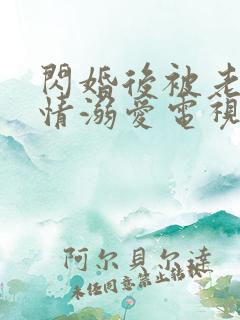 閃婚後被老
情溺愛電視
阿尔貝尔達
未经同意禁止转载